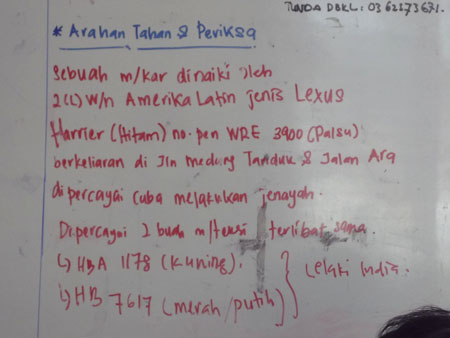 TUNDA DBKL: 03 62173671.
* Arahan Tahan & Periksa
Sebuah m/kar dinaiki oleh
2(L) W/n Amerika Latin jenis Lexus
Harrier (Hitam) no. pen WRE 3900 (Palsu)
berkeliaran di Jln Medang Tanduk & Jalan Ara
dipercayai cuba melakukan jenayah.
Dipercayai 2 buah m/teksi terlibat sama.
i) HBA 1178 (Kuning).
ii) HB 7617 (merah/putih)
Lelaki India.